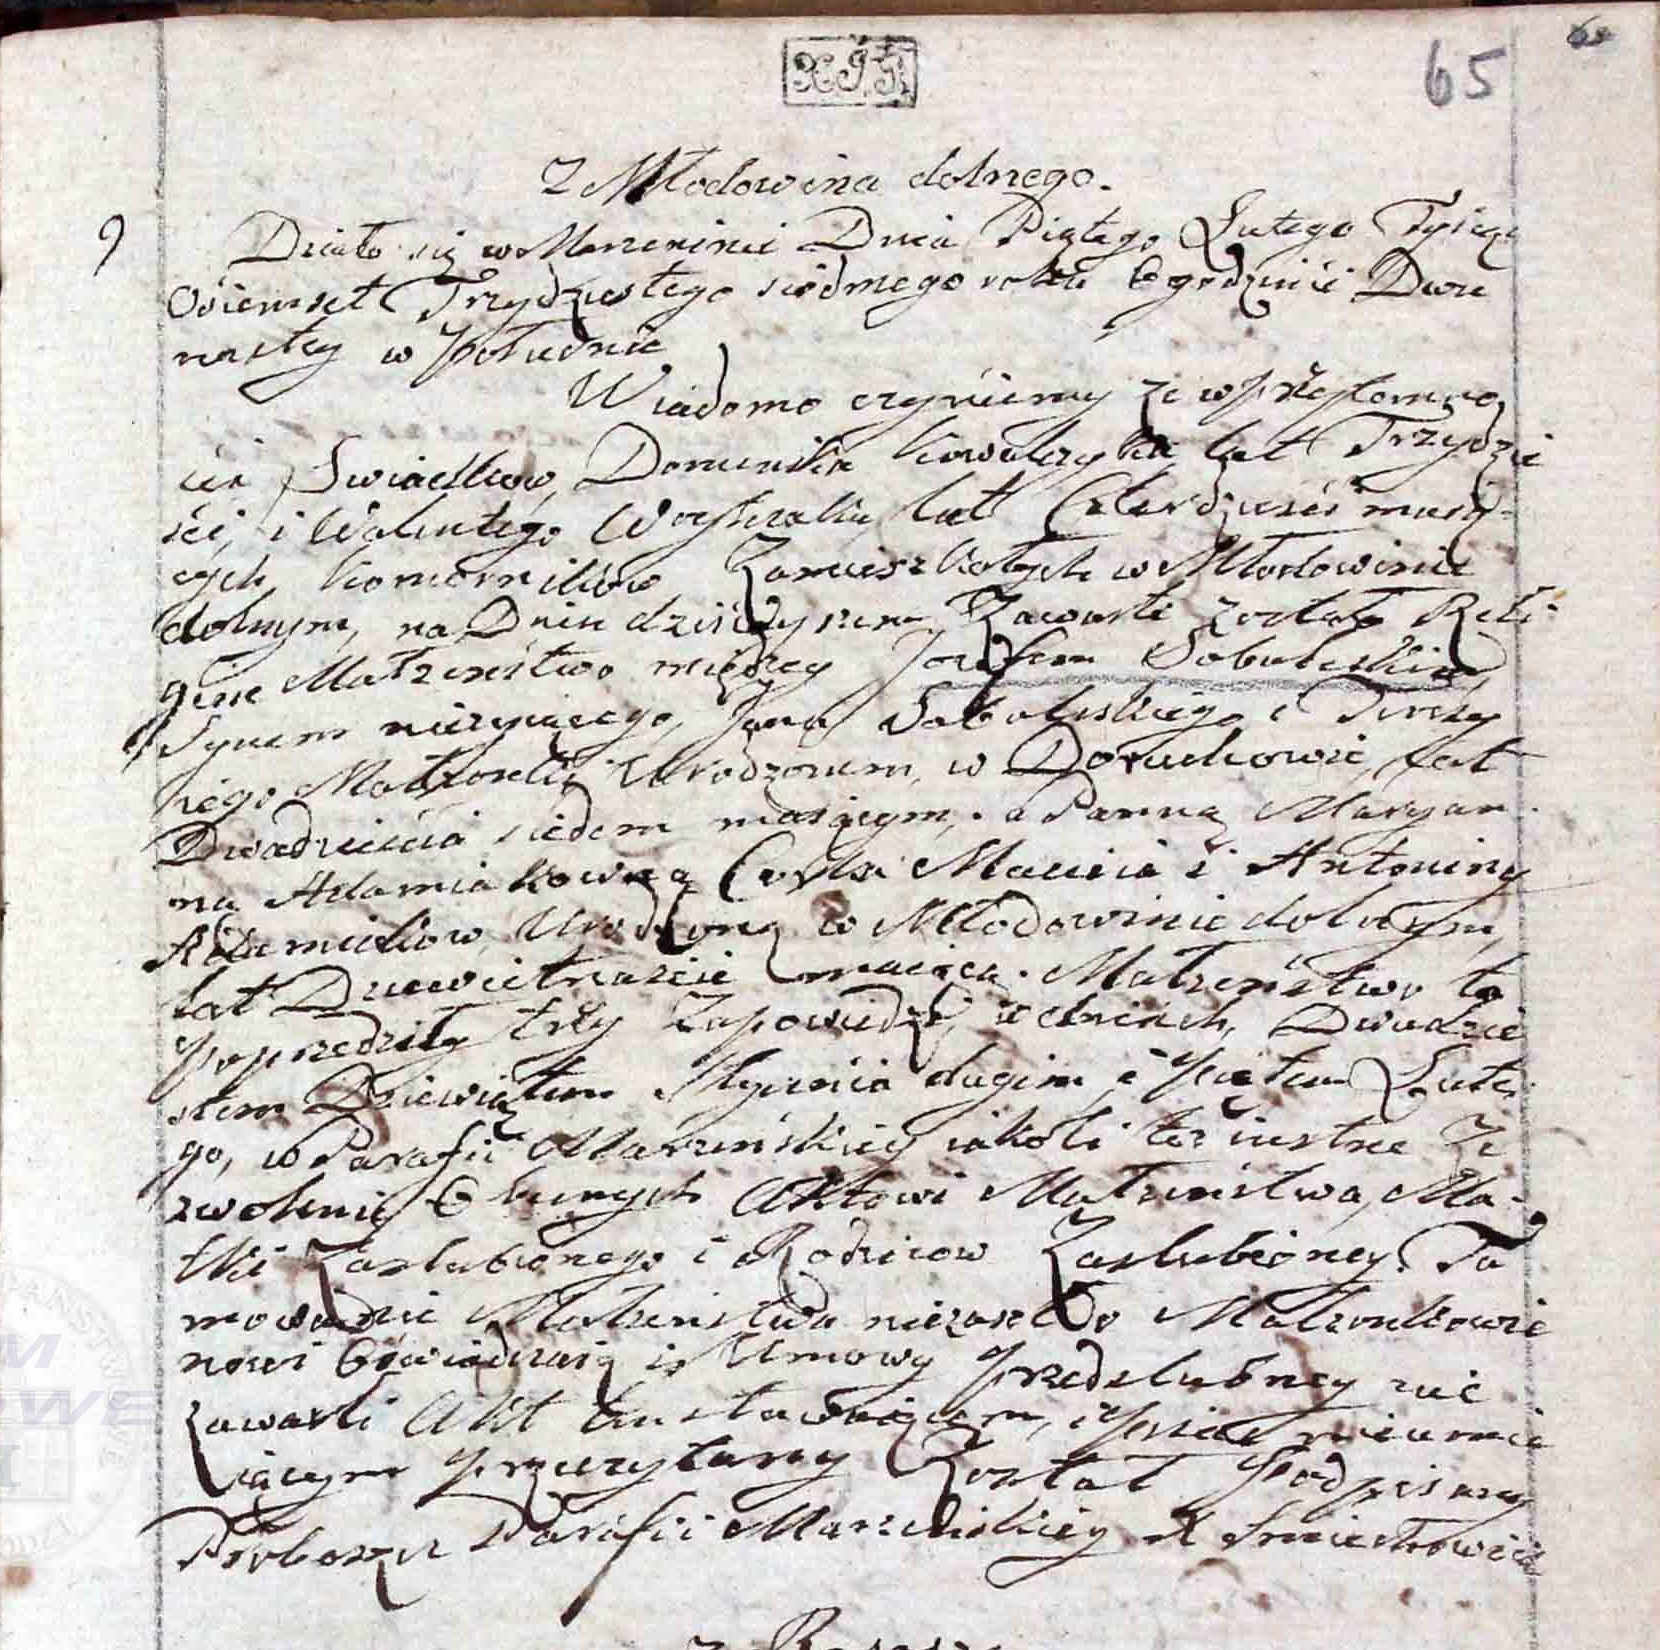 65
Z Młodowina dolnego.
9
Działo się w Marzeninie Dnia Piątego Lutego Tysiąc
Osiemset Trzydziestego siódmego roku O godzinie Dwu
nastey w południe
Wiadomo czyniemy że w przytomno
ści Swiadków, Dominika Kowalczyka lat Trzydzie
ści, i Walentego lat Czterdzieści mają-
cych Komorników Zamieszkałych w Młodowinie
dolnym, na Dniu dzisieyszem Zawarte zostało Reli-
gine Małżeństwo między Jozefem Sobuleskim
Synem nieżyiącego Jana Sobuleskiego i Teresy
iego Małżonki Urodzonem w Doruchowie, lat
Dwadzieścia siedem maiącym, a Panną Maryan-
ną Adamiakowną Corką Macieia i Antoniny
Adamiakow, Urodzoną w Młodowinie dolnym,
lat Dziewietnaście maiącą. Małżeństwo to
poprzedziły trzy Zapowiedzi w dniach, Dwudzie
stem Dziewiątem Stycznia dugim, i piątem Lute-
go, w Parafii Marzeńskiey iakoli też iustne Ze
zwolenie Obecnych Aktowi Małżeństwa, Ma-
tki Zaslubionego i Rodzicow Zaslubioney. Ta
mowanie Małżeństwa niezaszło Małżonkowie
nowi Oświadczaią iż Umowy przedslubney nie
zawarli Akt ten stawaiącem, i pisać nieumie
iącym przeczytany Został Podpisany
Proboszcz Parafii Marzeńskiey X